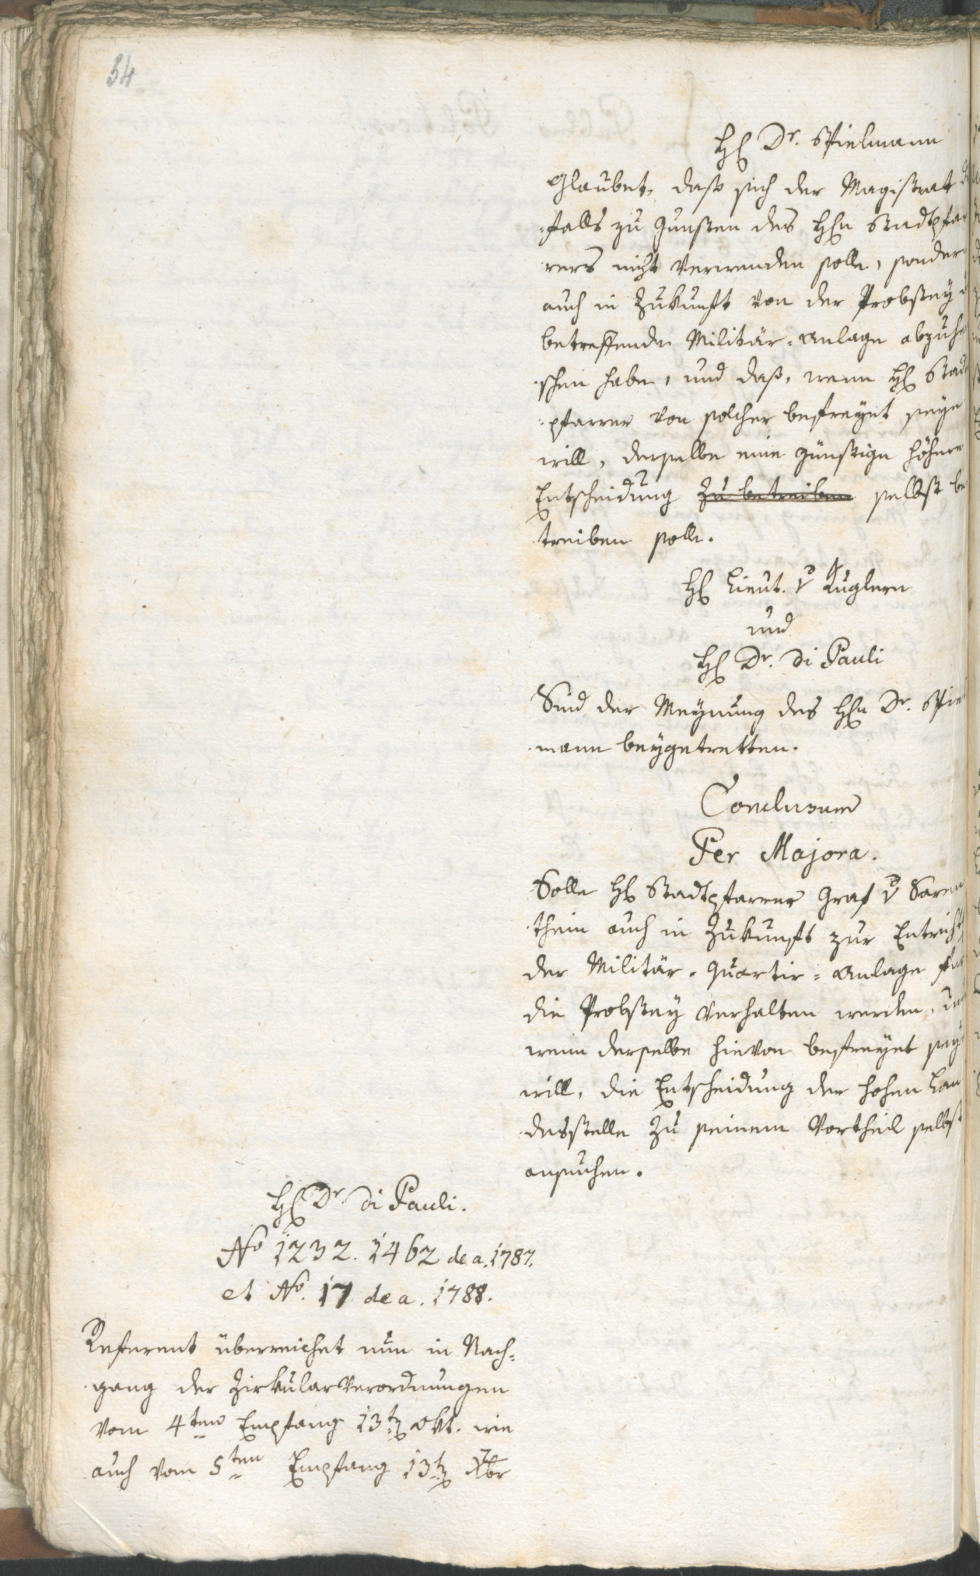 34
H Dr. Spielmann
Glaubet, daß sich der Magistrat
falls zu Gunsten des Hn Stadtpfar
rers nicht verwenden solle, sonder
auch in Zukunft von der Probstey
betreffende Militär-Anlage abzuhei
schen habe, und daß, wenn H Stadt
pfarrer von solcher befreyet seyn
will, derselbe eine günstige höhere
Entscheidung zu betreiben selbst be
treiben solle.
H Lieut. v Kuglern
und
H Dr. Di Pauli
Sind der Meynung des Hn Dr. Spiel
mann beygetretten.
Conclusum
Per Majora.
Solle H Stadtpfarrer Graf v Saren
thein auch in Zukunft zur Entricht
der Militär-Quartir-Anlage für
die Probstey verhalten werden, un
wenn derselbe hievon befreyet seyn
will, die Entscheidung der hohen Lan
desstelle zu seinem Vortheil selbst
ansuchen.
H Dr. Di Pauli.
No 1232. 1462 de a. 1787.
et No. 17 de a. 1788.
Referent überreichet nun in Nach-
gang der Zirkularverordnungen
vom 4ten Empfang 13t Okt. wie
auch vom 5ten Empfang 13t Xbr